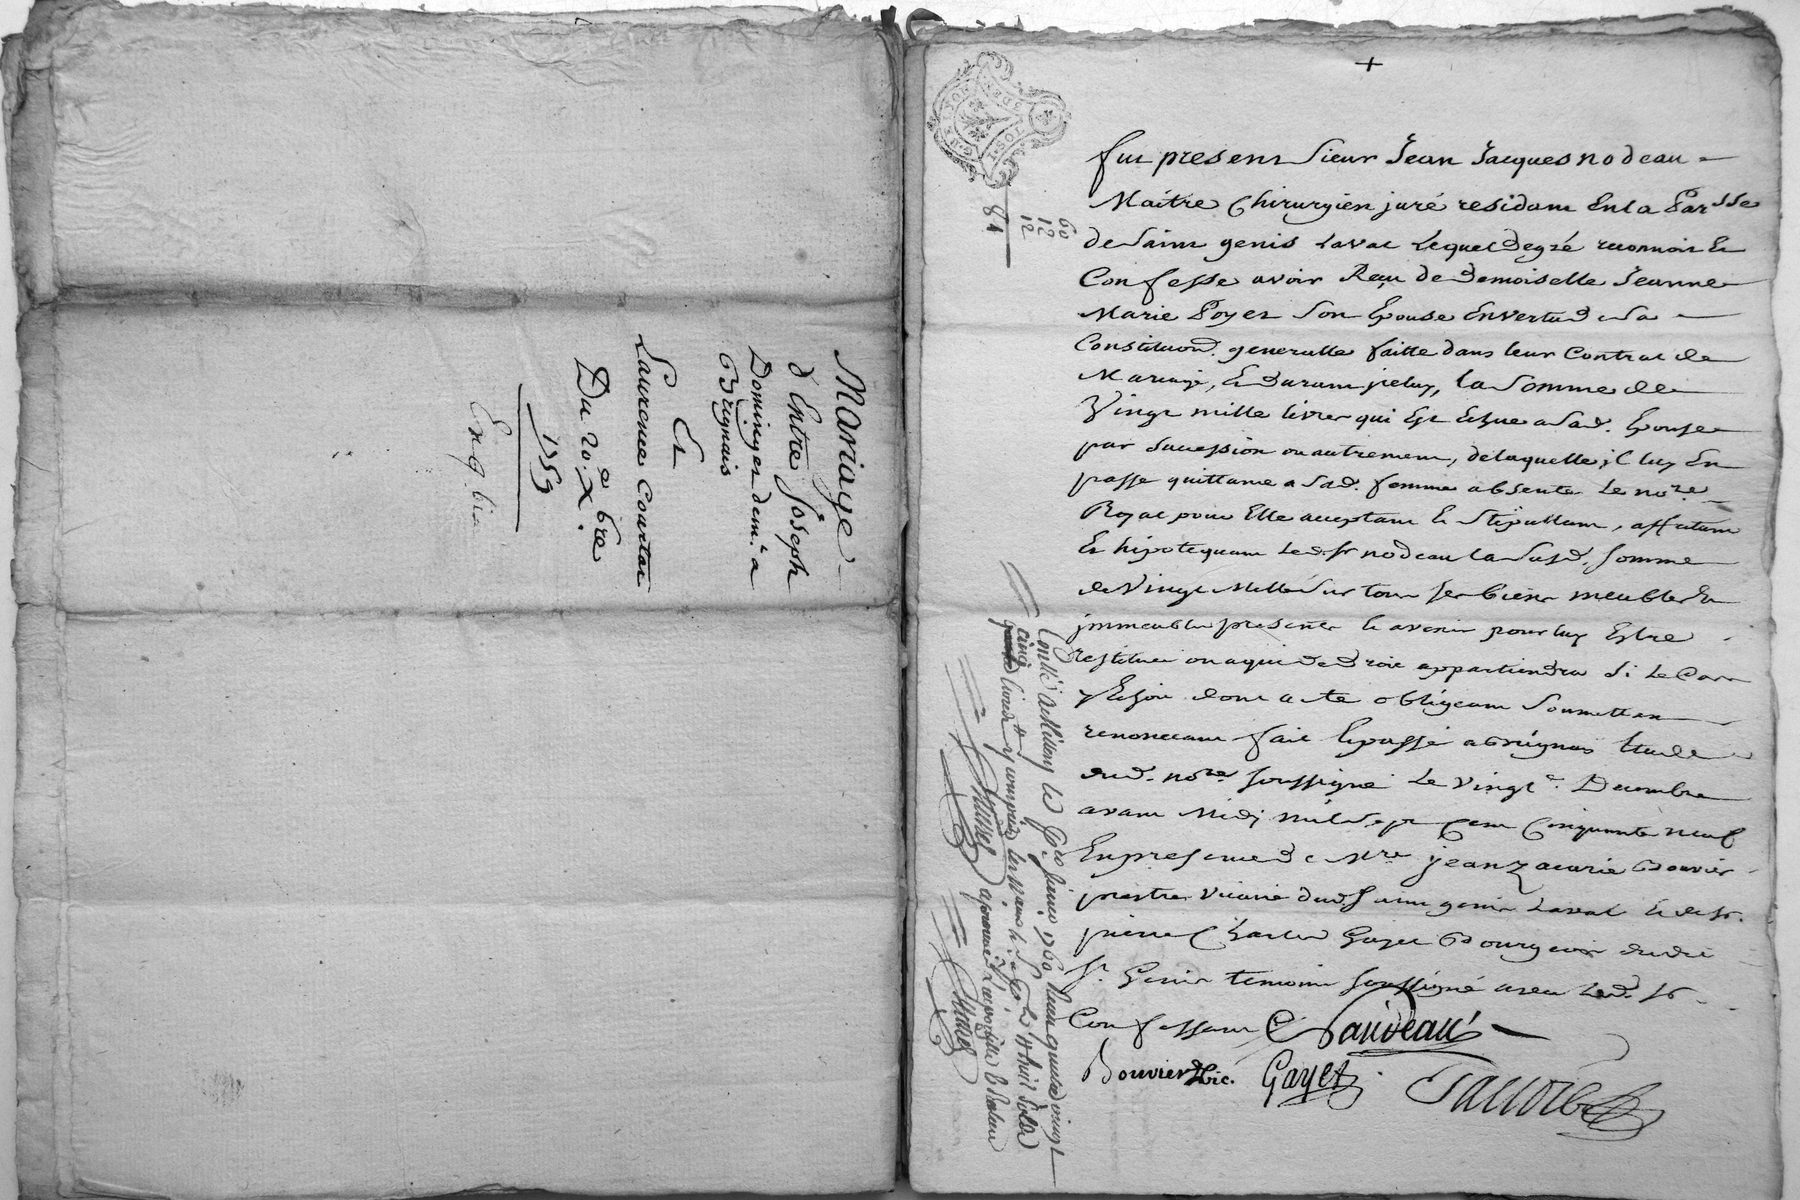 Mariage
d'Entre Joseph
Dominger dem.t a
Brignais
Et
Laurence Courtat
Du 20.e Xbre
1759
+
60
12
12
84
fut present Sieur Jean Jacques nodeau
Maitre Chirurgien juré residant En la Parsse
de Saint genis Laval Lequel de gré reconnoit Et
Confesse avoir Reçu de Demoiselle Jeanne
Marie Poyet Son Epouse En vertu de Sa
Constituon. generalle faitte dans leur Contrat de
Mariage, Et Durant jceluy, la Somme de
Vingt mille livres qui Est Echue a Sad. Epouse
par Succession ou autrement, de laquelle jl luy En
passe quittance a Sad. femme absente Le nore
Royal pour Elle acceptant Et Stipullant, affectant
Et hipotequant Led. Sr nodeau la Susd. Somme
de Vingt Mille Sur tous Ses biens meubles Et
jmmeubles presents Et avenir pour luy Estre
restituée ou a qui de Droit appartiendra Si Le Cas
y Echoit dont acte obligeant Soumettant
renonceant fait Et passé a Brignais Etude
dud. nore Soussigné Le vingt.e Decembre
avant Midj mil Sept Cent Cinquante neuf
En presence de Mre jean Zacarie Bouvier
prestre Vicaire dud. Saint genis Laval Et de Sr.
pierre Charles Gayet Bourgeois dudit
St. Genis temoins Soussigné avec Led. Sr
Confessant Naudeau
Bouvier Vic. Gayet
Conllé a Millery Le Janvier 1760 Reçu quatre vingt
cinq livres y compris